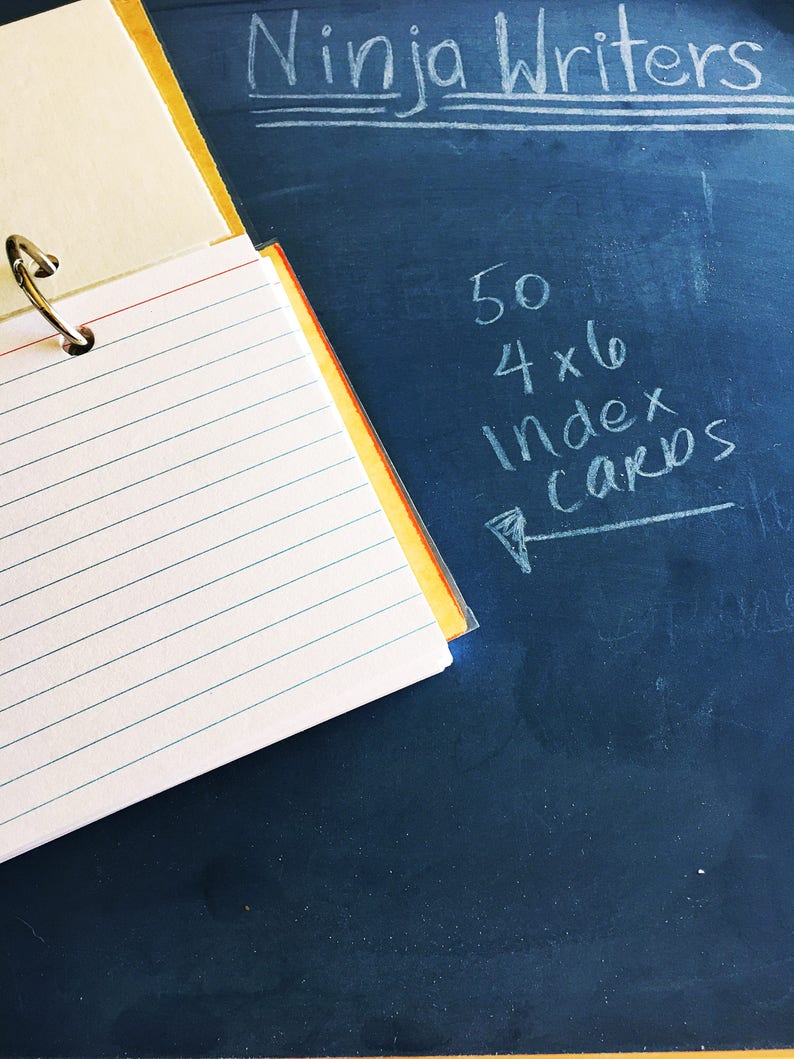 Ninja Writers
50
4x6
Index
CARDS